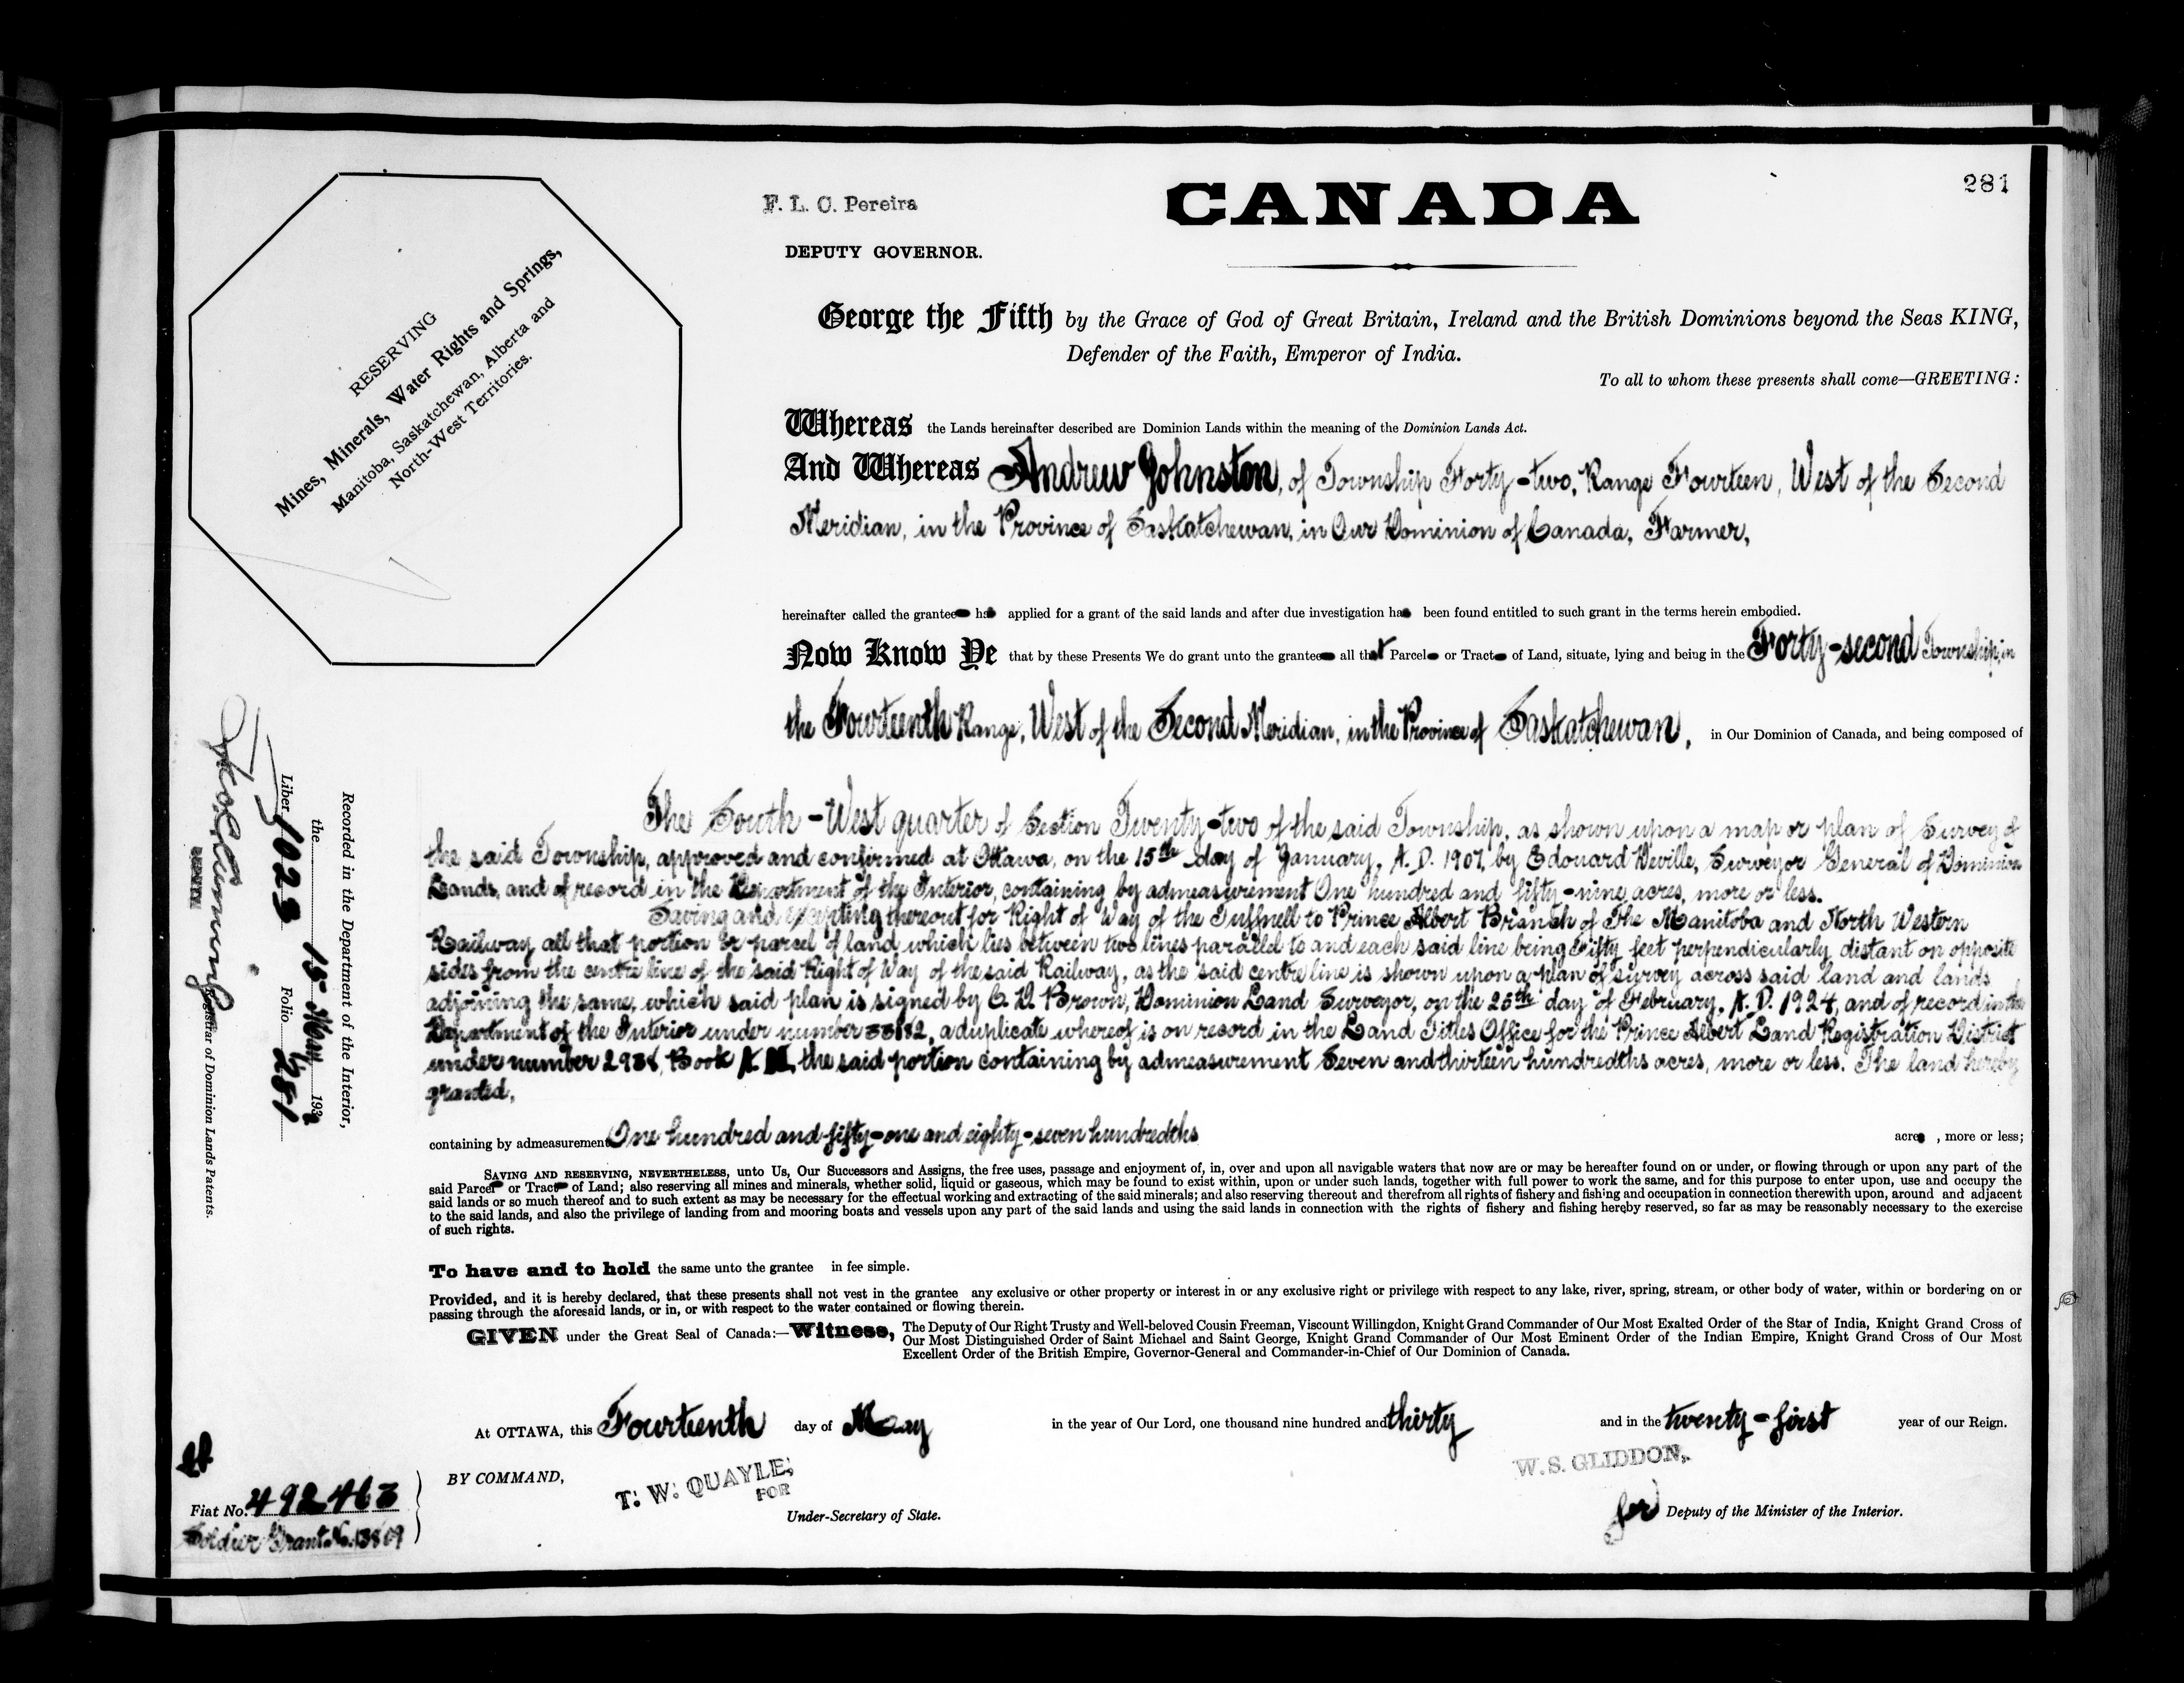 281
F. L. C. Pereira
DEPUTY GOVERNOR.
CANADA
RESERVING
Mines, Minerals, Water Rights and Springs,
Manitoba, Saskatchewan, Alberta and
North-West Territories.
George the Fifth by the Grace of God of Great Britain, Ireland and the British Dominions beyond the Seas KING,
Defender of the Faith, Emperor of India.
To all to whom these presents shall come—GREETING:
Whereas the Lands hereinafter described are Dominion Lands within the meaning of the Dominion Lands Act.
And Whereas Andrew Johnston, of Township Forty-two, Range Fourteen, West of the Second
Meridian, in the Province of Saskatchewan, in Our Dominion of Canada, Farmer,
hereinafter called the grantee has applied for a grant of the said lands and after due investigation has been found entitled to such grant in the terms herein embodied.
Now Know Ye that by these Presents We do grant unto the grantee all that Parcel or Tract of Land, situate, lying and being in the Forty-second Township, in
the Fourteenth Range, West of the Second Meridian, in the Province of Saskatchewan, in Our Dominion of Canada, and being composed of
The South-West quarter of Section Twenty-two of the said Township, as shown upon a map or plan of Survey of
the said Township, approved and confirmed at Ottawa, on the 15th day of January, A.D. 1907, by Edouard Deville, Surveyor General of Dominion
Lands, and of record in the Department of the Interior, containing by admeasurement One hundred and fifty-nine acres, more or less.
Saving and Excepting thereout for Right of Way of the Tuffnell to Prince Albert Branch of The Manitoba and North Western
Railway all that portion or parcel of land which lies between two lines parallel to and each said line being Fifty feet perpendicularly distant on opposite
sides from the centre line of the said Right of Way of the said Railway, as the said centre line is shown upon a plan of survey across said land and lands
adjoining the same, which said plan is signed by C. D. Brown, Dominion Land Surveyor, on the 25th day of February, A.D. 1924, and of record in the
Department of the Interior under number a duplicate whereof is on record in the Land Titles Office for the Prince Albert Land Registration District
under number Book the said portion containing by admeasurement Seven and thirteen hundredths acres, more or less. The land hereby
granted,
containing by admeasurement One hundred and fifty-one and eighty-seven hundredths acres, more or less;
SAVING AND RESERVING, NEVERTHELESS, unto Us, Our Successors and Assigns, the free uses, passage and enjoyment of, in, over and upon all navigable waters that now are or may be hereafter found on or under, or flowing through or upon any part of the
said Parcel or Tract of Land; also reserving all mines and minerals, whether solid, liquid or gaseous, which may be found to exist within, upon or under such lands, together with full power to work the same, and for this purpose to enter upon, use and occupy the
said lands or so much thereof and to such extent as may be necessary for the effectual working and extracting of the said minerals; and also reserving thereout and therefrom all rights of fishery and fishing and occupation in connection therewith upon, around and adjacent
to the said lands, and also the privilege of landing from and mooring boats and vessels upon any part of the said lands and using the said lands in connection with the rights of fishery and fishing hereby reserved, so far as may be reasonably necessary to the exercise
of such rights.
To have and to hold the same unto the grantee in fee simple.
Provided, and it is hereby declared, that these presents shall not vest in the grantee any exclusive or other property or interest in or any exclusive right or privilege with respect to any lake, river, spring, stream, or other body of water, within or bordering on or
passing through the aforesaid lands, or in, or with respect to the water contained or flowing therein.
GIVEN under the Great Seal of Canada:—Witness, The Deputy of Our Right Trusty and Well-beloved Cousin Freeman, Viscount Willingdon, Knight Grand Commander of Our Most Exalted Order of the Star of India, Knight Grand Cross of
Our Most Distinguished Order of Saint Michael and Saint George, Knight Grand Commander of Our Most Eminent Order of the Indian Empire, Knight Grand Cross of Our Most
Excellent Order of the British Empire, Governor-General and Commander-in-Chief of Our Dominion of Canada.
At OTTAWA, this Fourteenth day of May in the year of Our Lord, one thousand nine hundred and thirty and in the twenty-first year of our Reign.
BY COMMAND,
T. W. QUAYLE,
FOR
Under-Secretary of State.
W. S. GLIDDON,
for Deputy of the Minister of the Interior.
Recorded in the Department of the Interior,
the 15 May 193
Liber 1023 Folio 281
DEPUTY
Registrar of Dominion Lands Patents.
Fiat No. 492463
Soldier Grant No. 13809